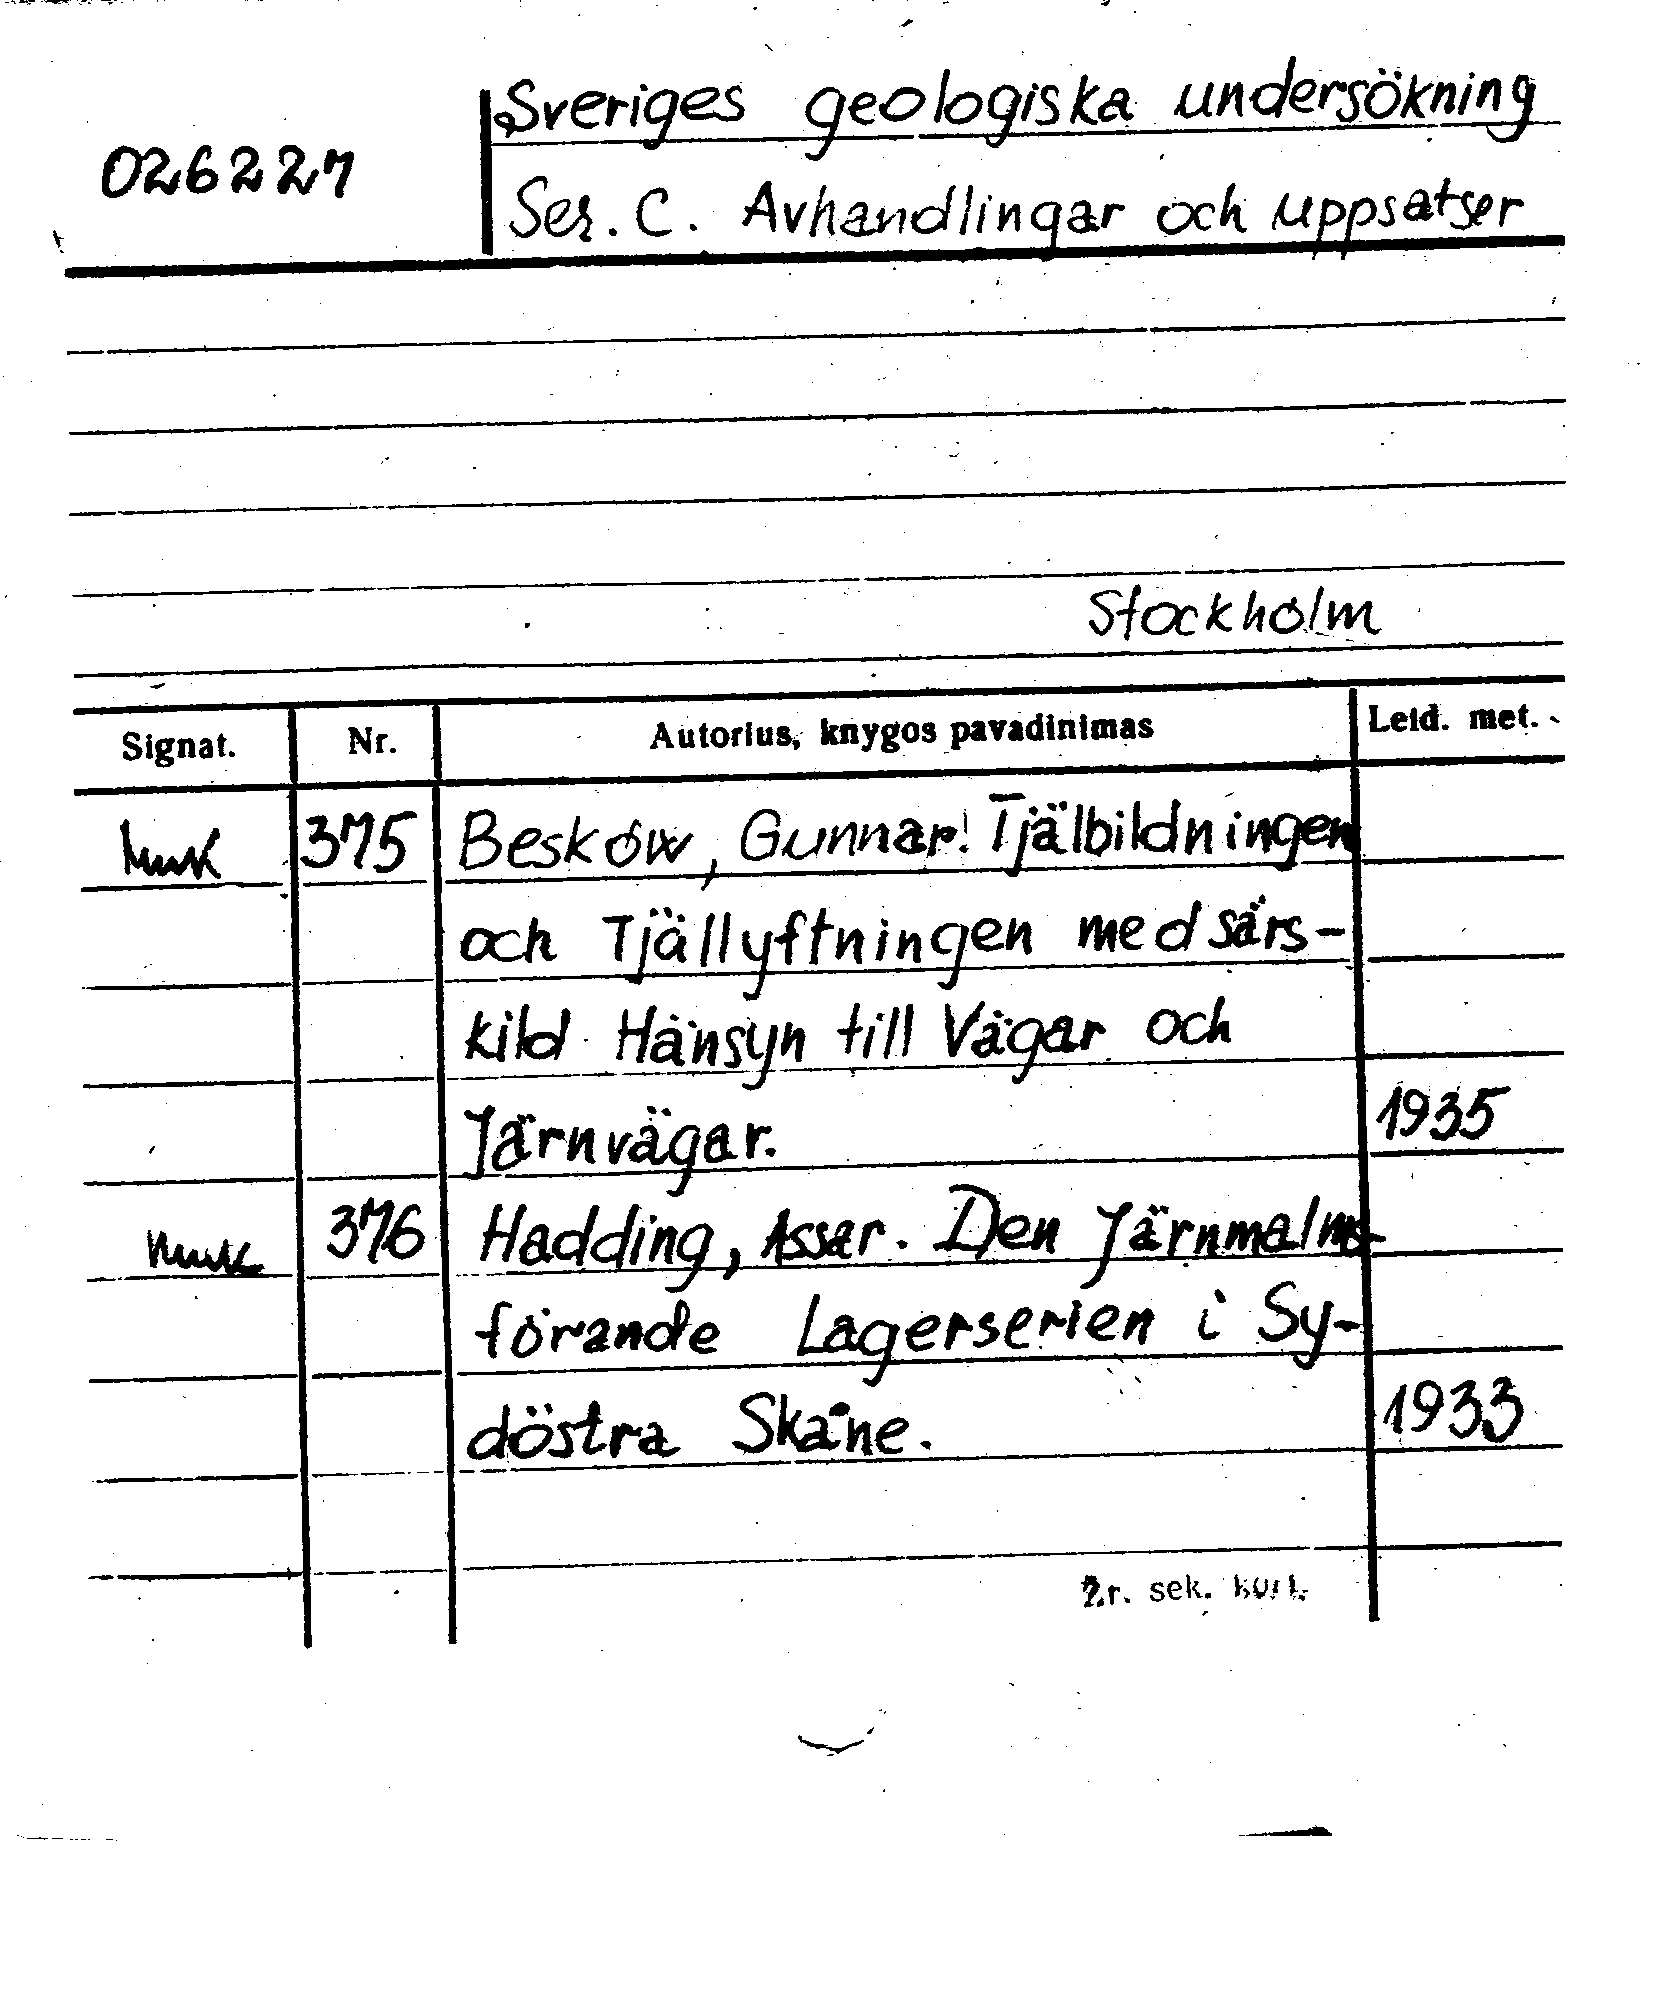 Sveriges geologiska undersökning
026227
Ser. C. Avhandlingar och uppsatser
Stockholm
Signat. Nr. Autorius, knygos pavadinimas Leid. met.
375 Beskow, Gunnar. Tjälbildningen
och Tjällyftningen med särs-
kild Hänsyn till Vägar och
Järnvägar. 1935
376 Hadding, Assar. Den Järnmalms-
förande Lagerserien i Sy-
döstra Skåne. 1933
2r. sek. kort.